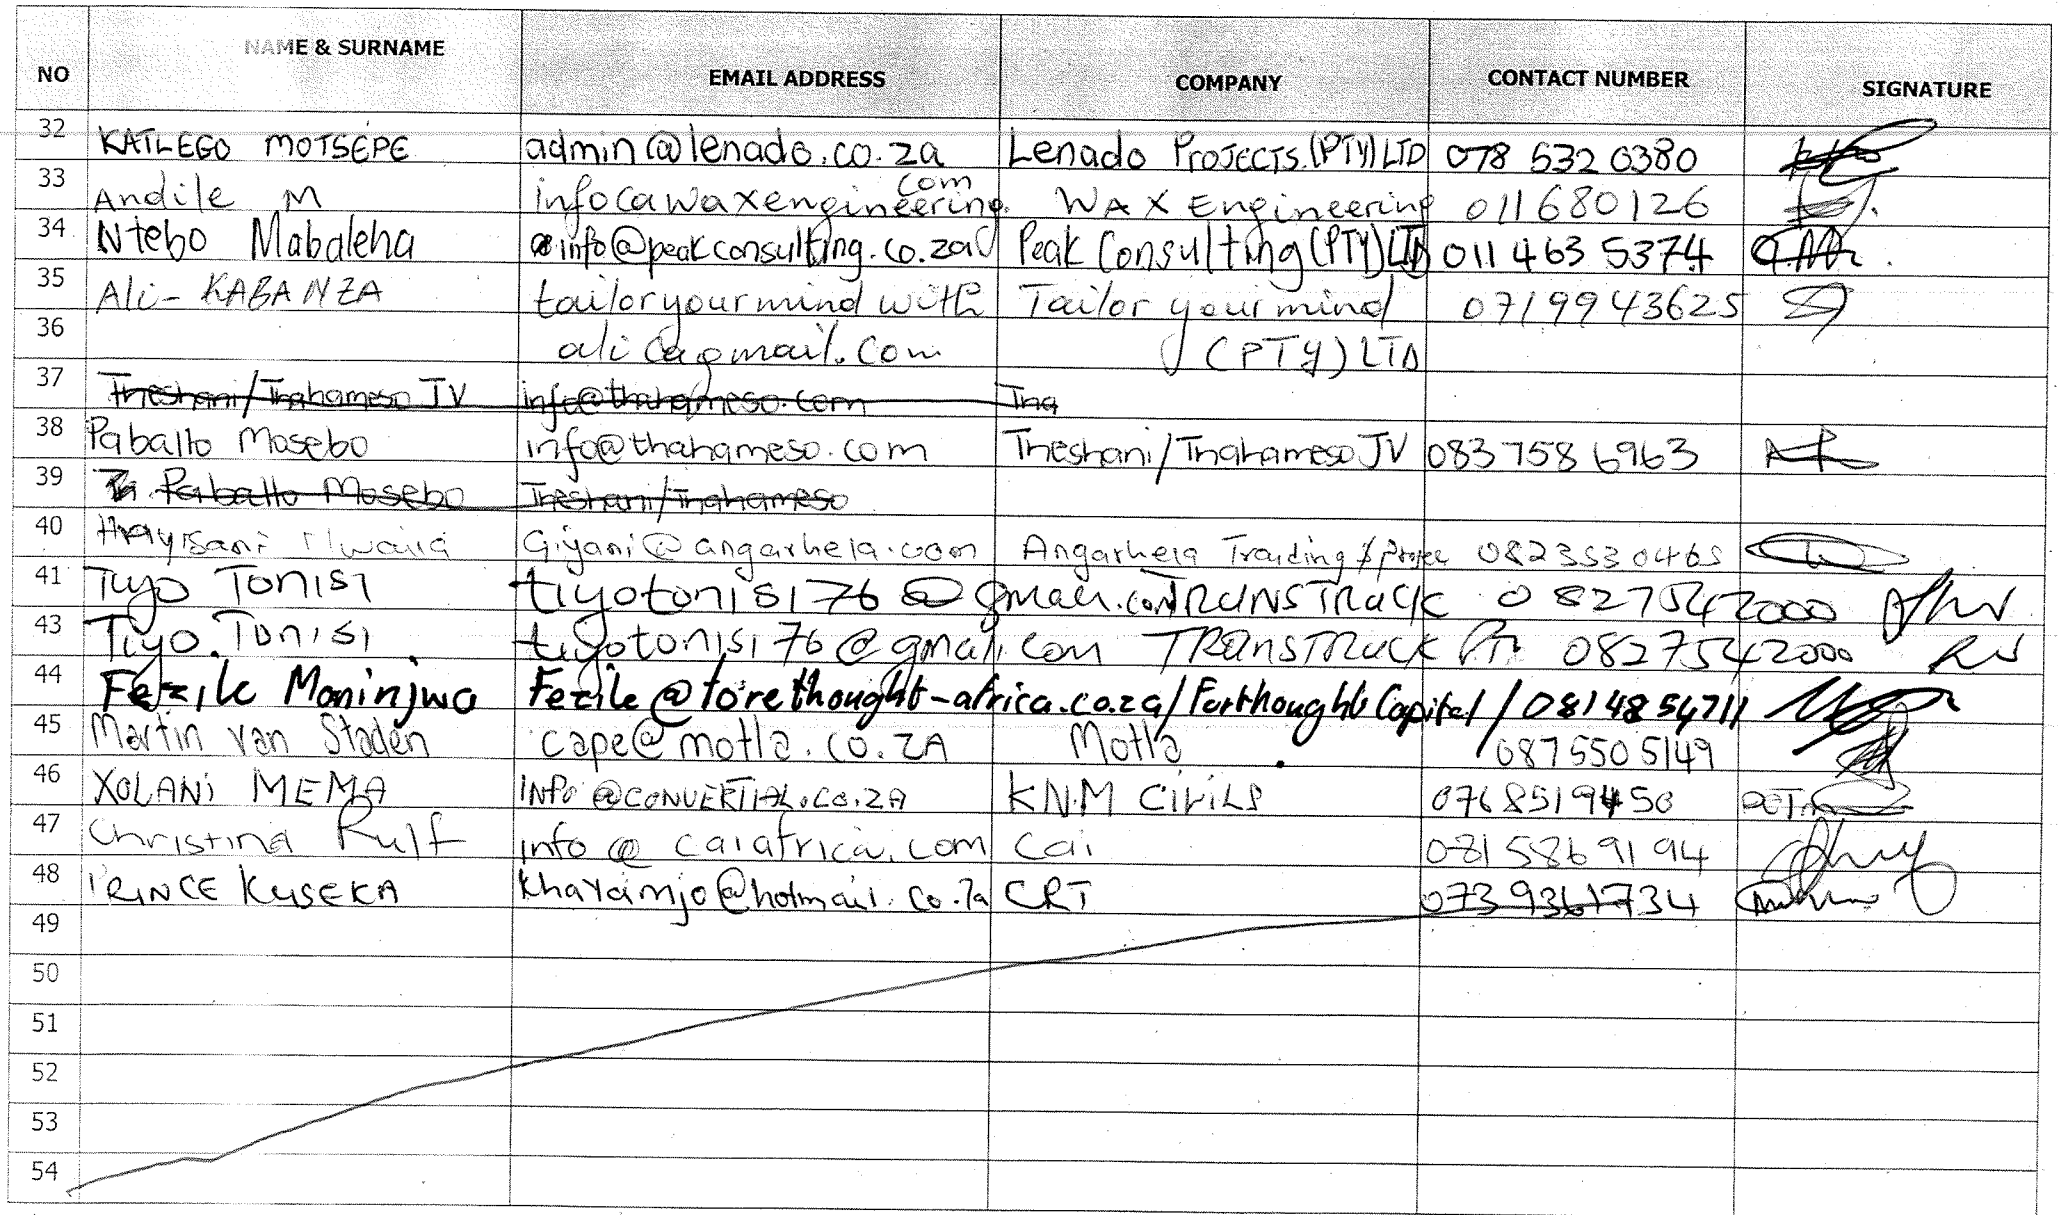 NO NAME & SURNAME EMAIL ADDRESS COMPANY CONTACT NUMBER SIGNATURE
32 KATLEGO MOTSEPE admin@lenado.co.za Lenado PROJECTS (PTY) LTD 078 532 0380
33 Andile M info@waxengineering.com WAX Engineering 011680126
34 Ntebo Mabaleha info@peakconsulting.co.za Peak Consulting (PTY) LTD 011 463 5374
35 Ali- KABANZA tailoryourmind with Tailor your mind 0719943625
36 ali@gmail.com (PTY) LTD
37 Theshani/Thahameso JV info@thahameso.com Tha
38 Paballo Mosebo info@thahameso.com Theshani/Thahameso JV 083 758 6963
39 Paballo Mosebo Theshani/Thahameso
40 Giyani@angarhela.com Angarhela Trading & Projec 0823530465
41 Tiyo TONISI tiyotonisi76@gmail.com TRANSTRUCK 0827542000
43 Tiyo. TONISI tiyotonisi76@gmail.com TRANSTRUCK 0827542000
44 Fezile Moninjwa Fezile@forethought-africa.co.za/ Forthought Capital / 0814854711
45 Martin van Staden cape@motla.co.ZA Motla 0875505149
46 XOLANI MEMA INFO@CONVERTIAL.CO.ZA KNM CIVILS 0768519450
47 Christina Rulf info@caiafrica.com Cai 0815869194
48 PRINCE KUSEKA kharamjo@hotmail.co.za CRT 0739361734
49
50
51
52
53
54